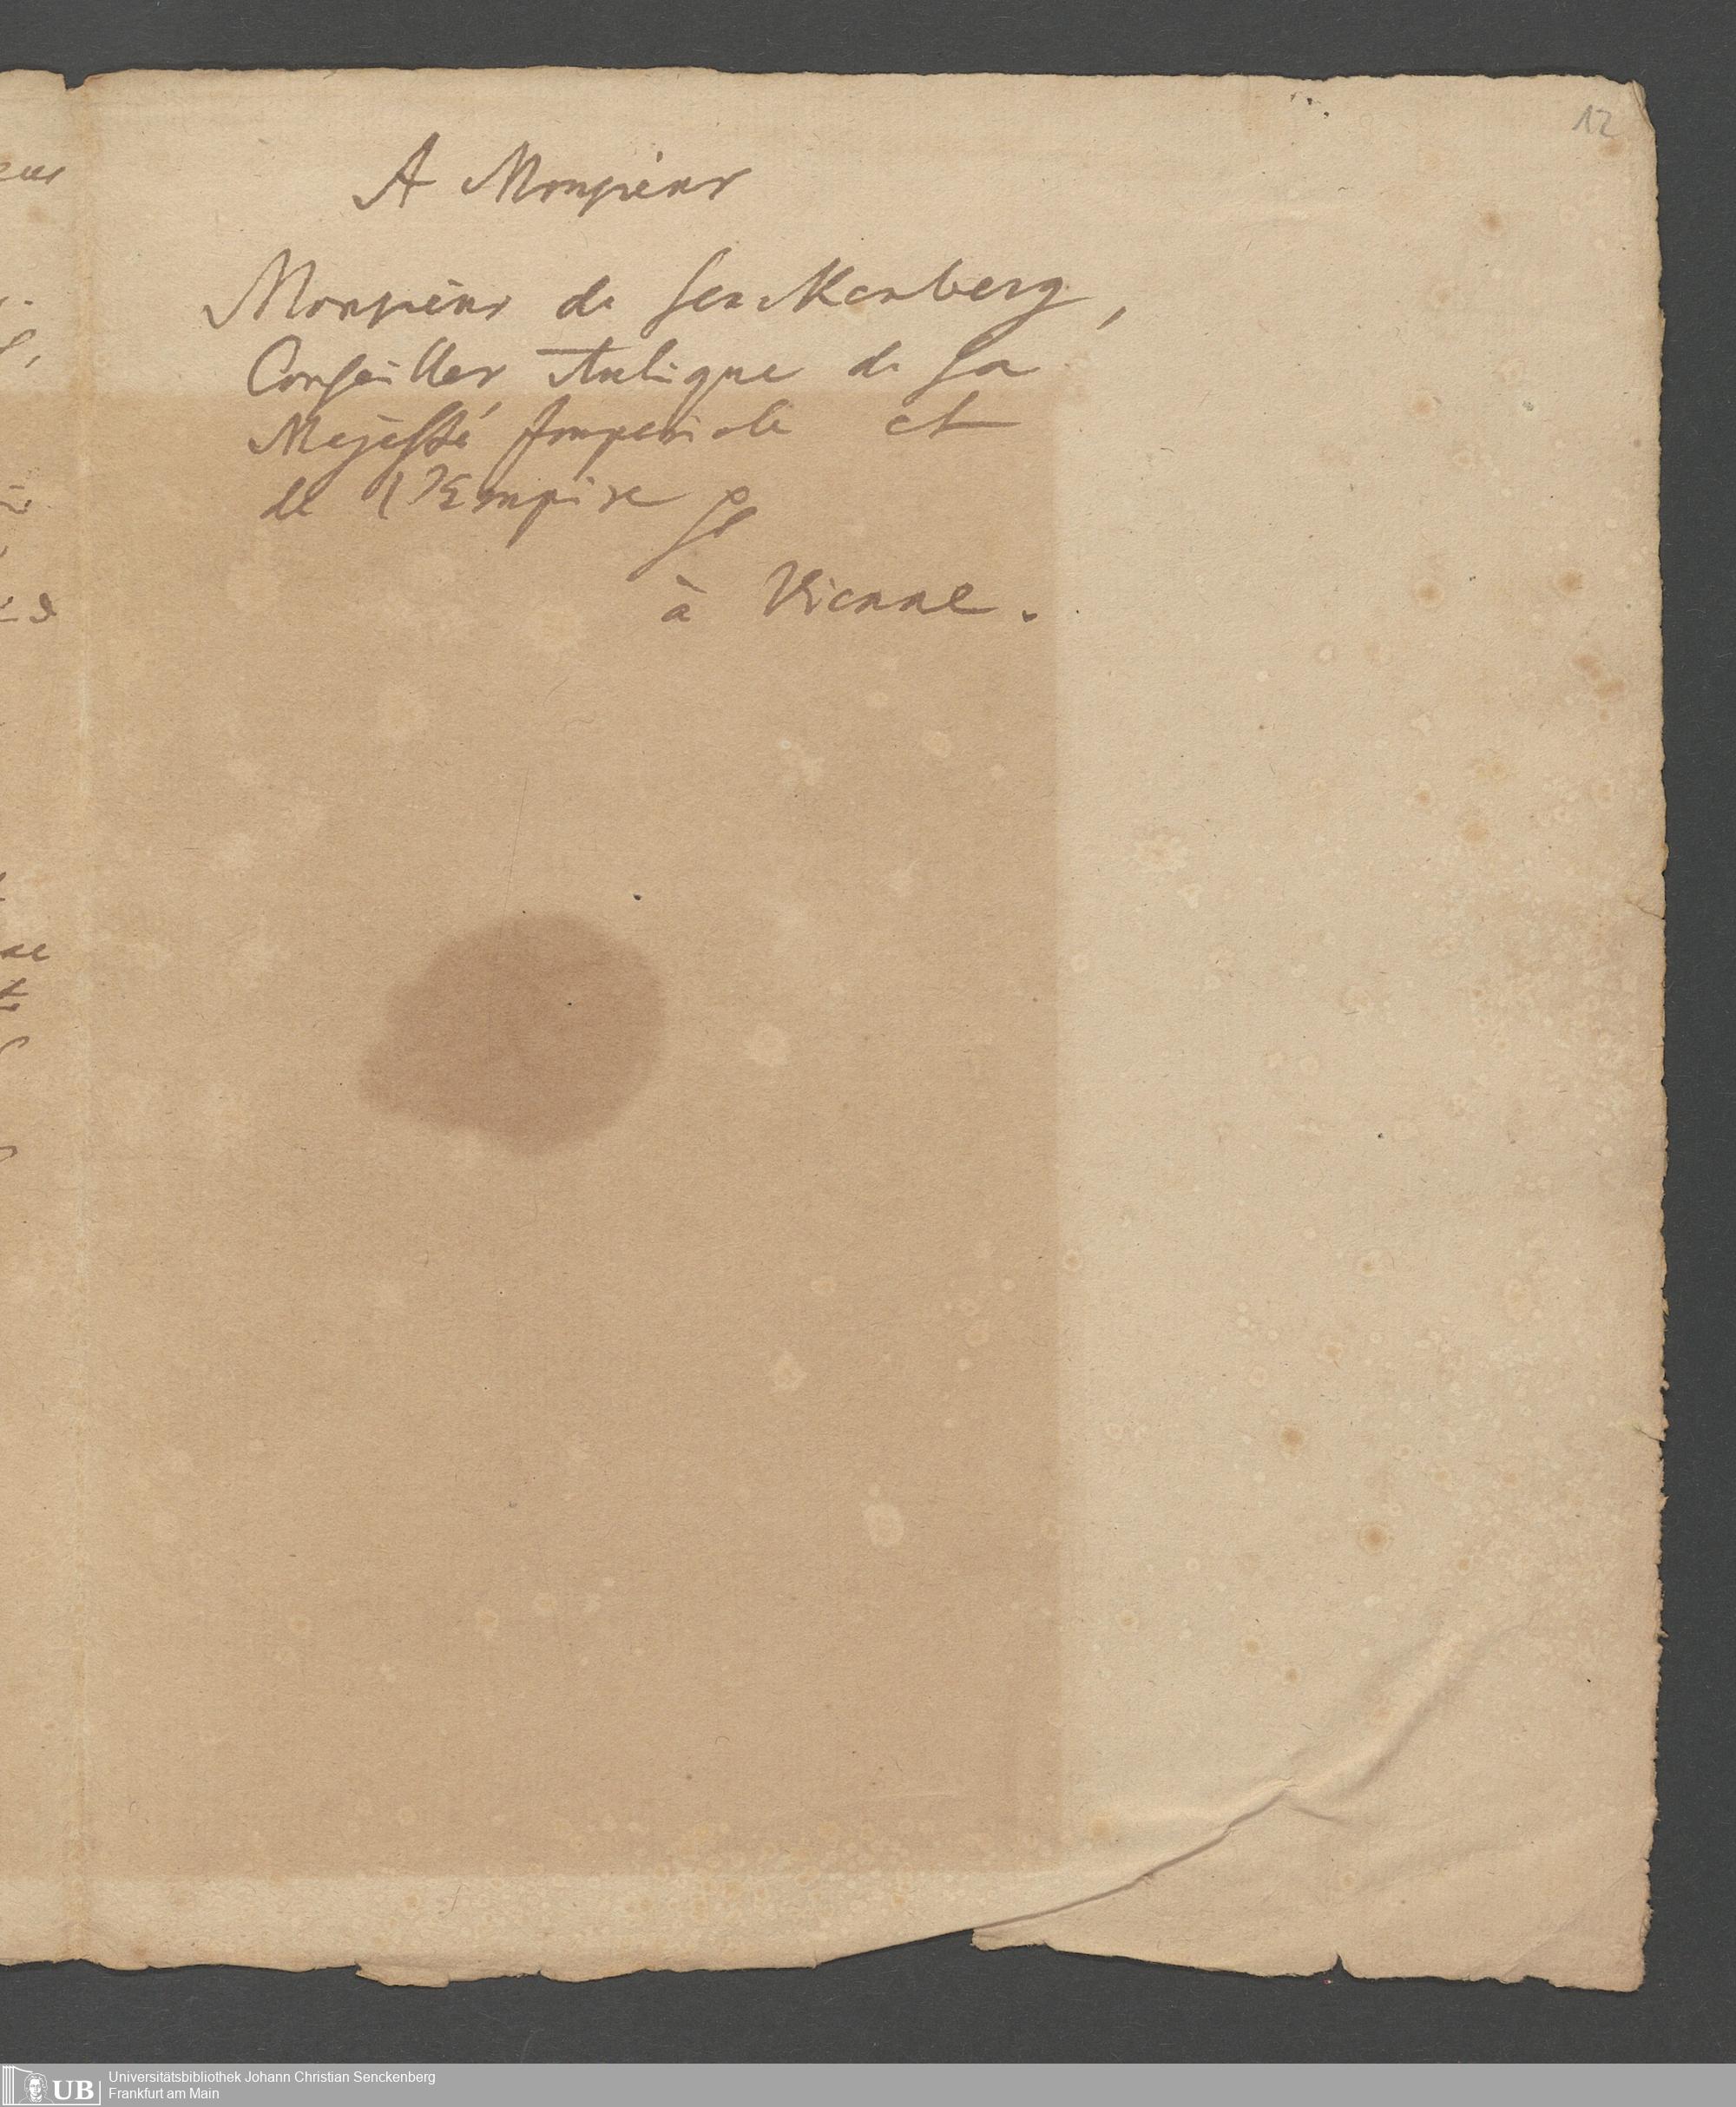 12
A Monsieur
Monsieur de Senckenberg,
Conseiller Aulique de Sa
Majesté Imperiale et
de l'Empire
à Vienne.
UB Universitätsbibliothek Johann Christian Senckenberg
Frankfurt am Main